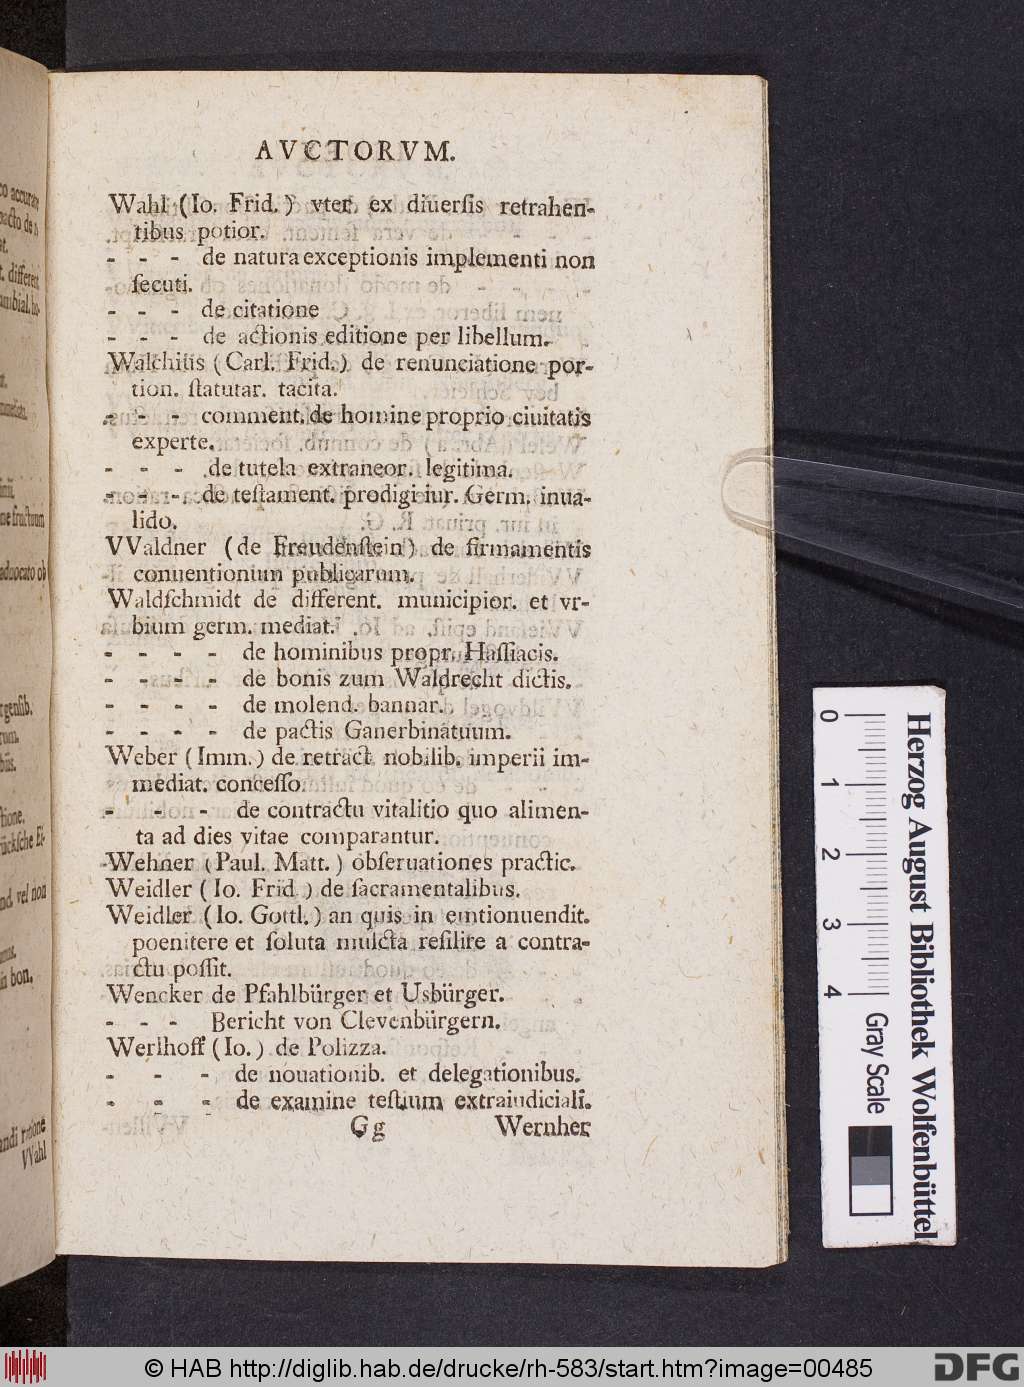 AVCTORVM.
Wahl (Io. Frid.) vter ex diuerſis retrahen-
tibus potior.
- - - de natura exceptionis implementi non
ſecuti.
- - - de citatione
- - - de actionis editione per libellum.
Walchius (Carl. Frid.) de renunciatione por-
tion. ſtatutar. tacita.
- - - comment. de homine proprio ciuitatis
experte.
- - - de tutela extraneor. legitima.
- - - de teſtament. prodigi iur. Germ. inua-
lido.
VValdner (de Freudenſtein) de firmamentis
conuentionum publicarum.
Waldſchmidt de different. municipior. et vr-
bium germ. mediat.
- - - - de hominibus propr. Haſſiacis.
- - - - de bonis zum Waldrecht dictis.
- - - - de molend. bannar.
- - - - de pactis Ganerbinatuum.
Weber (Imm.) de retract nobilib. imperii im-
mediat. conceſſo.
- - - de contractu vitalitio quo alimen-
ta ad dies vitae comparantur.
Wehner (Paul. Matt.) obſeruationes practic.
Weidler (Io. Frid ) de ſacramentalibus.
Weidler (Io. Gottl.) an quis in emtionuendit.
poenitere et ſoluta mulcta reſilire a contra-
ctu poſſit.
Wencker de Pfahlbürger et Usbürger.
- - - Bericht von Clevenbürgern.
Werlhoff (Io.) de Polizza.
- - - de nouationib. et delegationibus.
- - - de examine teſtium extraiudiciali.
Gg Wernher
co accurate
pacto de
different
ambial.
mmediati.
ne fructuum
aduocato ob
rgenſib.
rückſche
vel non
in bon.
andi ratione
VVahl
0 1 2 3 4
Gray Scale
Herzog August Bibliothek Wolfenbüttel
© HAB http://diglib.hab.de/drucke/rh-583/start.htm?image=00485
DFG